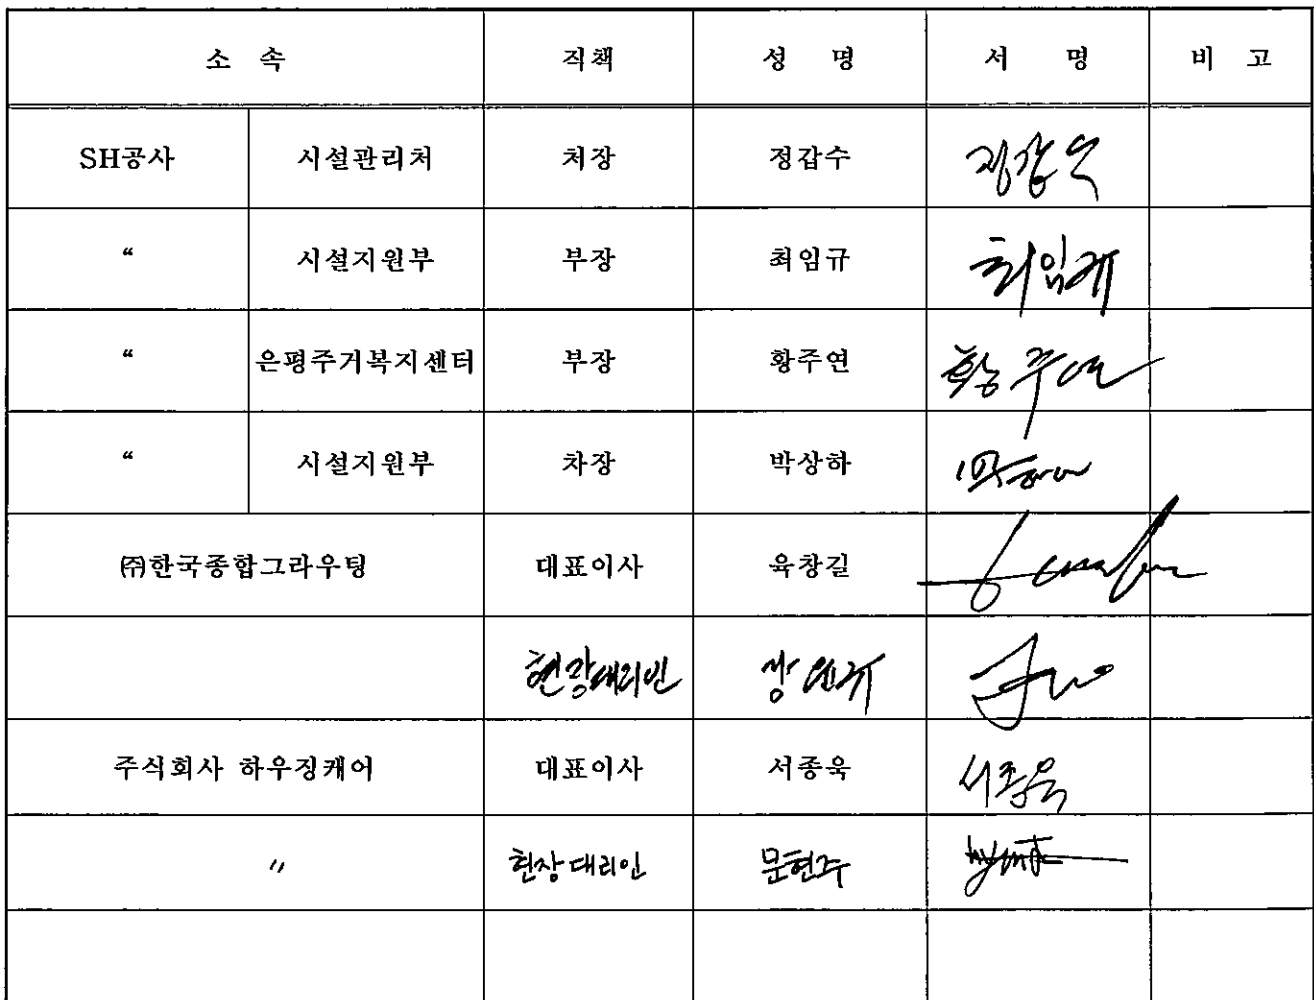 소 속 직책 성 명 서 명 비 고
SH공사 시설관리처 처장 정갑수 정갑수
“ 시설지원부 부장 최임규 최임규
“ 은평주거복지센터 부장 황주연 황주연
“ 시설지원부 차장 박상하
㈜한국종합그라우팅 대표이사 육창길
현장대리인
주식회사 하우징케어 대표이사 서종욱 서종욱
〃 현장대리인 문현주